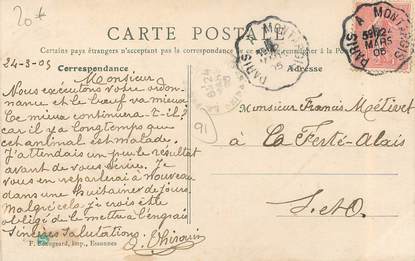 20*
CARTE POSTALE
Certains pays étrangers n'acceptent pas la correspondance de ce
24-3-05
Correspondance
Adresse
PARIS A MONTARGIS
MARS
05
PARIS A MONTARGIS
91
Monsieur
Nous exécutons votre ordon-
nance et le bœuf va mieux
Ce mieux continuera-t-il?
car il y a longtemps que
cet animal est malade.
J'attendais un peu le résultat
avant de vous écrire. Je
vous en reparlerai à nouveau
dans une huitaine de jours.
Malgré cela je crois être
obligé de le mettre à l'engrais
Sincères salutations.
E. Thirouin
Monsieur Francis Métivet
à La Ferté-Alais
S-et-O.
F. Beaugeard, imp., Essonnes